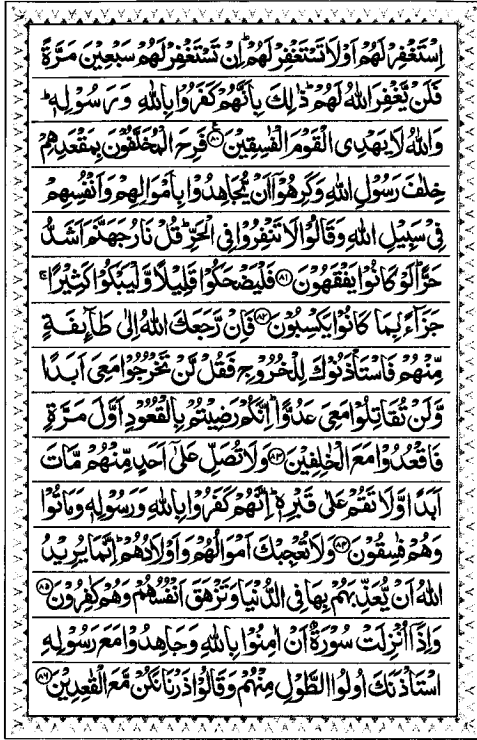 اِسْتَغْفِرْ لَهُمْ اَوْ لَا تَسْتَغْفِرْ لَهُمْ ؕ اِنْ تَسْتَغْفِرْ لَهُمْ سَبْعِيْنَ مَرَّةً
فَلَنْ يَّغْفِرَ اللّٰهُ لَهُمْ ؕ ذٰلِكَ بِاَنَّهُمْ كَفَرُوْا بِاللّٰهِ وَرَسُوْلِهٖ ؕ
وَاللّٰهُ لَا يَهْدِى الْقَوْمَ الْفٰسِقِيْنَ ﴿۸۰﴾ فَرِحَ الْمُخَلَّفُوْنَ بِمَقْعَدِهِمْ
خِلٰفَ رَسُوْلِ اللّٰهِ وَكَرِهُوْۤا اَنْ يُّجَاهِدُوْا بِاَمْوَالِهِمْ وَاَنْفُسِهِمْ
فِىْ سَبِيْلِ اللّٰهِ وَقَالُوْا لَا تَنْفِرُوْا فِى الْحَرِّ ؕ قُلْ نَارُ جَهَنَّمَ اَشَدُّ
حَرًّا ؕ لَوْ كَانُوْا يَفْقَهُوْنَ ﴿۸۱﴾ فَلْيَضْحَكُوْا قَلِيْلًا وَّلْيَبْكُوْا كَثِيْرًا ۚ
جَزَآءًۢ بِمَا كَانُوْا يَكْسِبُوْنَ ﴿۸۲﴾ فَاِنْ رَّجَعَكَ اللّٰهُ اِلٰى طَآئِفَةٍ
مِّنْهُمْ فَاسْتَاْذَنُوْكَ لِلْخُرُوْجِ فَقُلْ لَّنْ تَخْرُجُوْا مَعِىَ اَبَدًا
وَّلَنْ تُقَاتِلُوْا مَعِىَ عَدُوًّا ؕ اِنَّكُمْ رَضِيْتُمْ بِالْقُعُوْدِ اَوَّلَ مَرَّةٍ
فَاقْعُدُوْا مَعَ الْخٰلِفِيْنَ ﴿۸۳﴾ وَلَا تُصَلِّ عَلٰٓى اَحَدٍ مِّنْهُمْ مَّاتَ
اَبَدًا وَّلَا تَقُمْ عَلٰى قَبْرِهٖ ؕ اِنَّهُمْ كَفَرُوْا بِاللّٰهِ وَرَسُوْلِهٖ وَمَاتُوْا
وَهُمْ فٰسِقُوْنَ ﴿۸۴﴾ وَلَا تُعْجِبْكَ اَمْوَالُهُمْ وَاَوْلَادُهُمْ ؕ اِنَّمَا يُرِيْدُ
اللّٰهُ اَنْ يُّعَذِّبَهُمْ بِهَا فِى الدُّنْيَا وَتَزْهَقَ اَنْفُسُهُمْ وَهُمْ كٰفِرُوْنَ ﴿۸۵﴾
وَاِذَاۤ اُنْزِلَتْ سُوْرَةٌ اَنْ اٰمِنُوْا بِاللّٰهِ وَجَاهِدُوْا مَعَ رَسُوْلِهِ
اسْتَاْذَنَكَ اُولُوا الطَّوْلِ مِنْهُمْ وَقَالُوْا ذَرْنَا نَكُنْ مَّعَ الْقٰعِدِيْنَ ﴿۸۶﴾